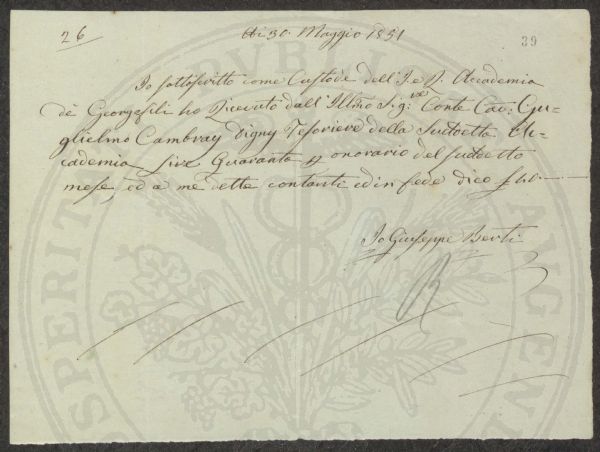 26
Adi 30. Maggio 1851
39
Io sottoscritto come Custode dell'I. e R. Accademia
de Georgofili ho Ricevuto dall'Illmo Sig:re Conte Cav: Gu=
glielmo Cambray Digny Tesoriere della Sudetta Ac=
cademia Lire Quaranta p onorario del sudetto
mese, ed a me dette contanti ed in fede dico
Io Giuseppe Berti
PUBLICAE
PROSPERITATI AUGENDAE